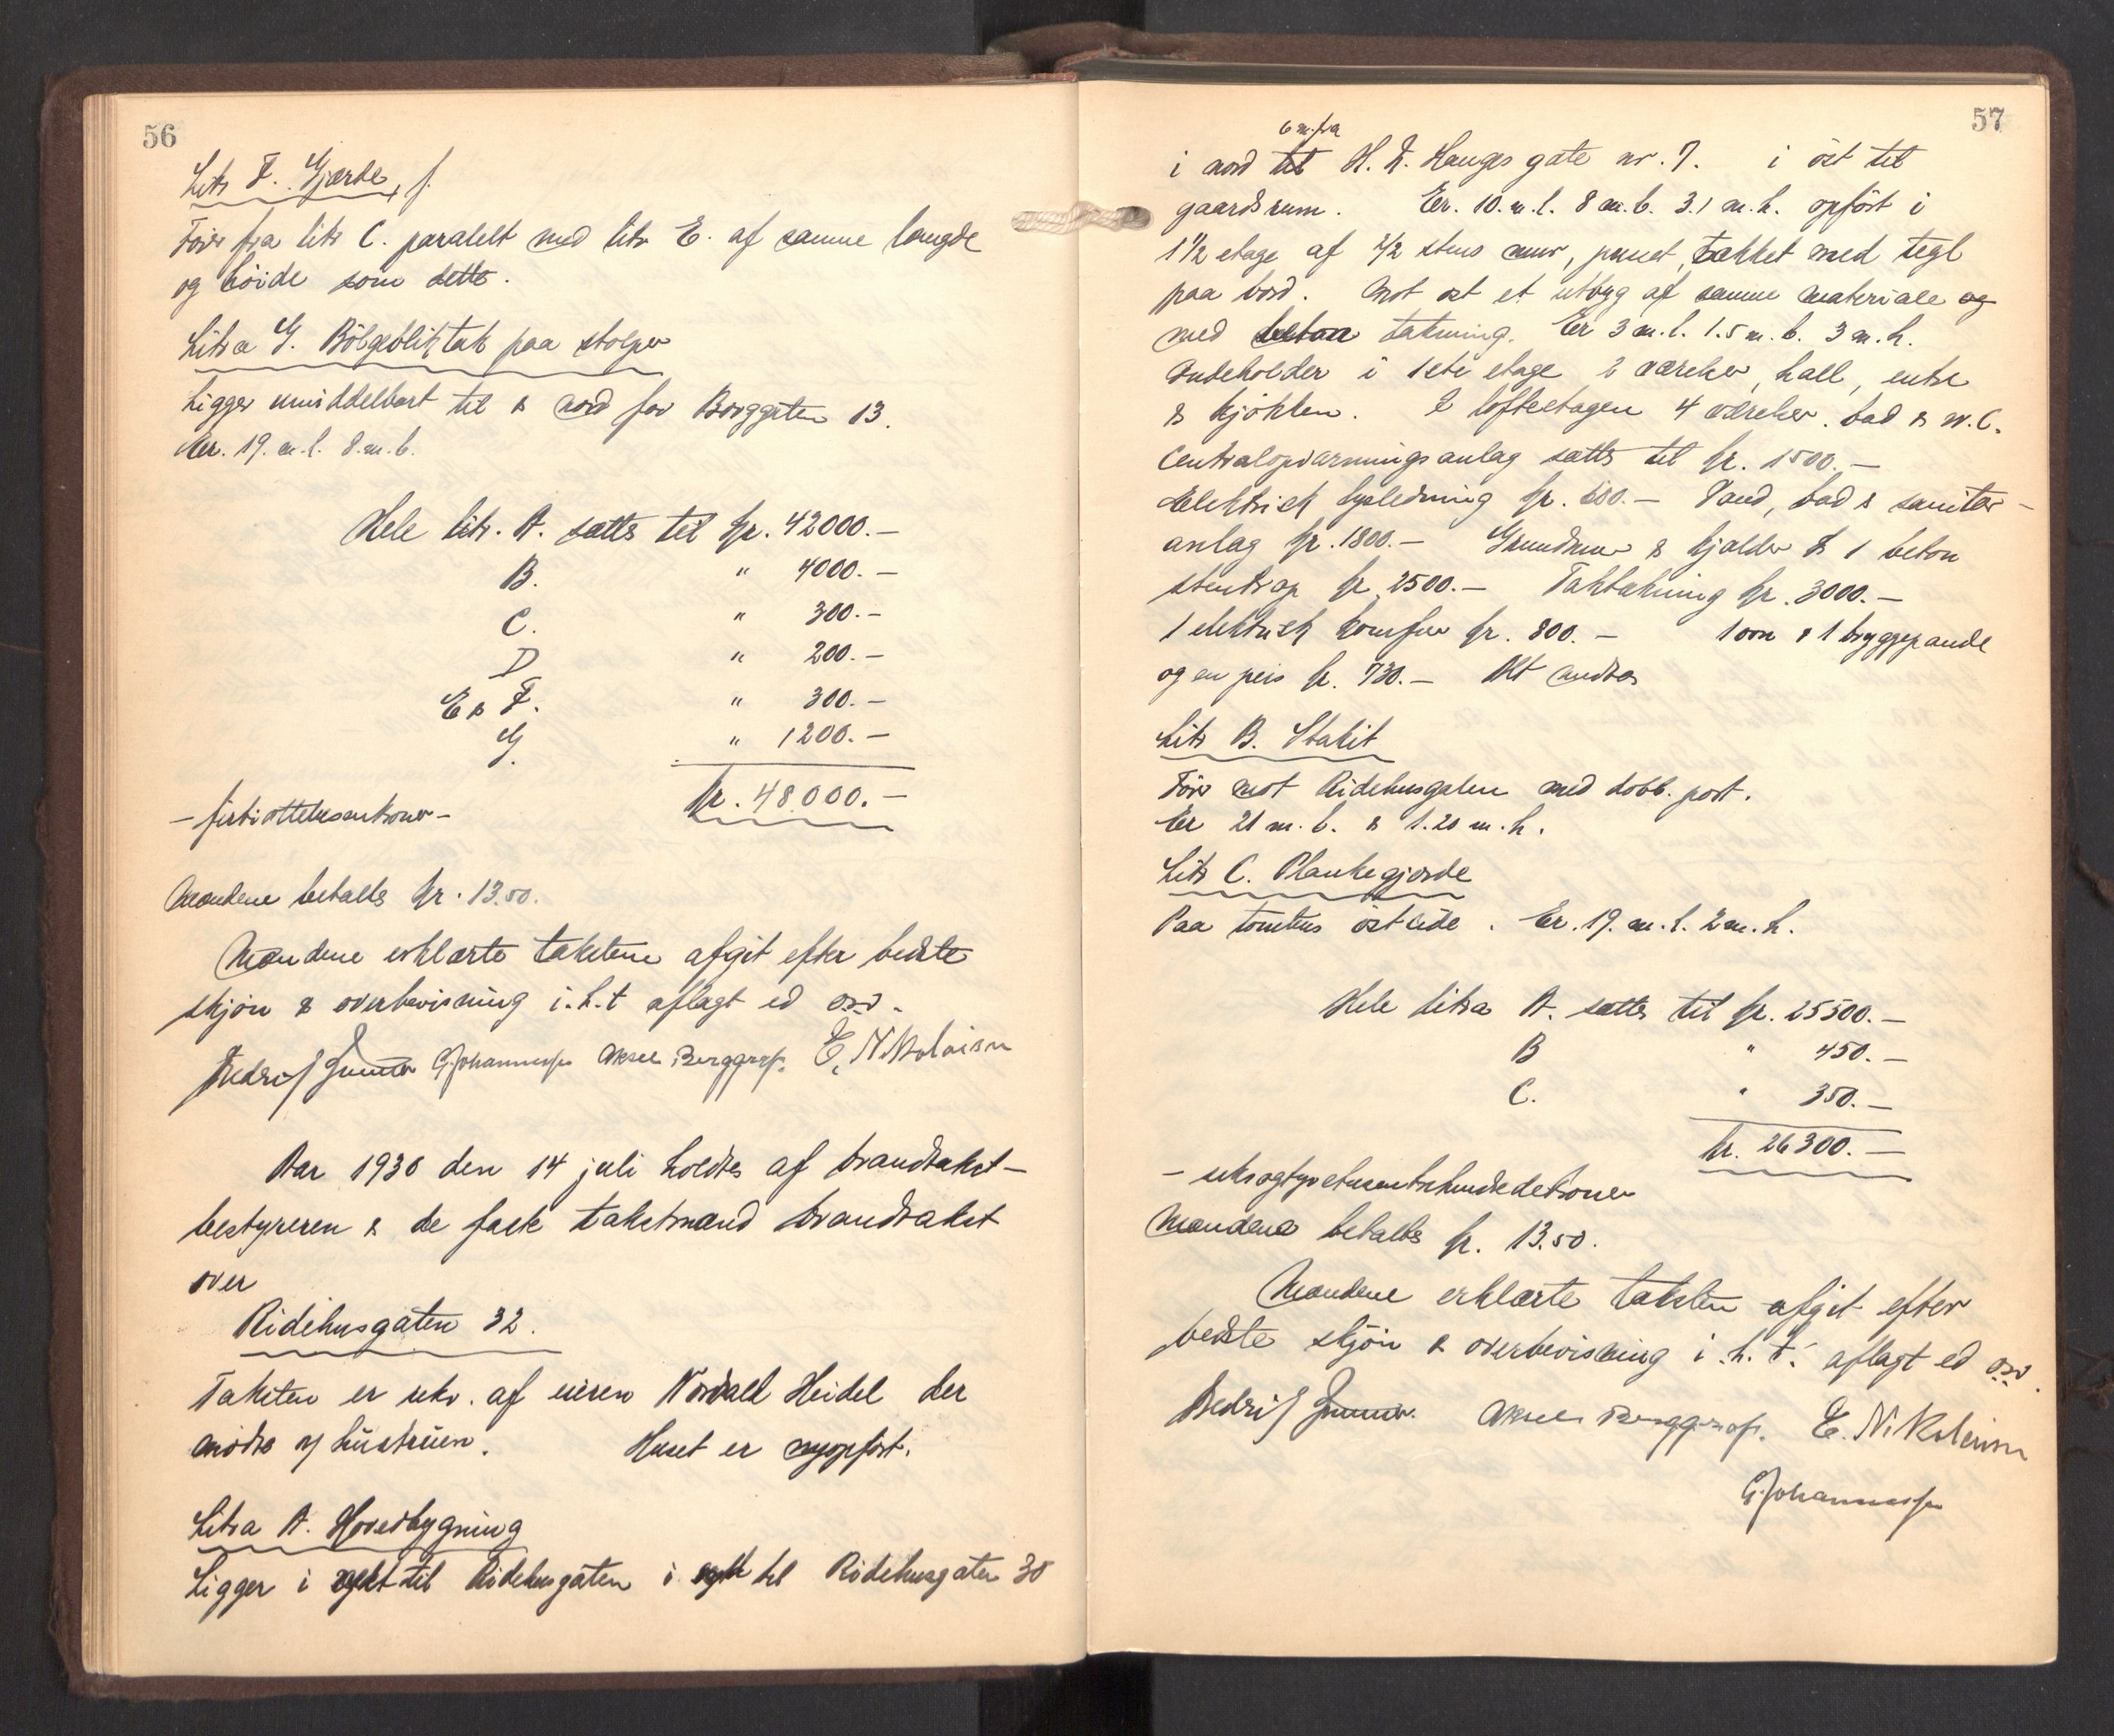 56
Litr F. Gjærde, f.
Förer fra litr C. paralelt med litr E. af samme længde
og höide som dette.
Litra G. Bölgebliktak paa stolper
Ligger umiddelbart til & nord for Borggaten 13.
Er. 19. m. l. 8. m. b.
Hele litr. A. sættes til kr. 42000.-
B. " 4000.-
C. " 300.-
D " 200.-
E & F. " 300.-
G. " 1200.-
kr. 48000.-
- førtiottetusenkroner -
Mændene betaltes kr. 13.50.
Mændene erklærte taksten afgit efter bedste
skjön & overbevisning i. h. t aflagt ed osv.
G. Johannessen Aksel Berggraf. E. Nikolaisen
Aar 1930 den 14 juli holdtes af brandtakst-
bestyreren & de faste takstmænd brandtakst
over
Ridehusgaten 32.
Taksten er rekv. af eieren Nordald Heidel der
mödte v/ hustruen. Huset er nyopfört.
Litra A. Hovedbygning
Ligger i vest til Ridehusgaten i syd til Ridehusgaten 30
57
6 m. fra
i nord til H. N. Hauges gate nr. 7. i öst til
gaardsrum. Er. 10. m. l. 8 m. b. 3.1 m. h. opfört i
1 1/2 etage af 2/2 stens mur, pusset, tækket med tegl
paa bord. Mot öst et utbyg af samme materiale og
med beton tækning. Er 3 m. l. 1.5 m. b. 3 m. h.
Indeholder i 1ste etage 2 værelser, hall, entre
& kjökken. I loftsetagen 4 værelser. bad & W. C.
Centralopvarmingsanlæg sættes til kr. 1500.-
Elektrisk lysledning kr. 600.- Vand, bad & sanitær-
anlæg kr. 1800.- Grundmur & kjælder & 1 beton
stentrap kr. 2500.- Taktækning kr. 3000.-
1 elektrisk komfur kr. 800.- 1 ovn & 1 bryggepande
og en peis kr. 730.- Alt mudtes
Litr B. Stakit
Förer mot Ridehusgaten med dobb. port.
Er 21 m. l. & 1.20 m. h.
Litr C. Plankegjerde
Paa tomtens östside. Er. 19. m. l. 2 m. h.
Hele litra A. sættes til kr. 25500.-
B " 450.-
C. " 350.-
kr. 26300.-
- seksogtyvetusentrehundredekroner
Mændene betaltes kr. 13.50.
Mændene erklærte taksten afgit efter
bedste skjön & overbevisning i. h. t. aflagt ed osv.
Aksel Berggraf. E. Nikolaisen
G. Johannessen